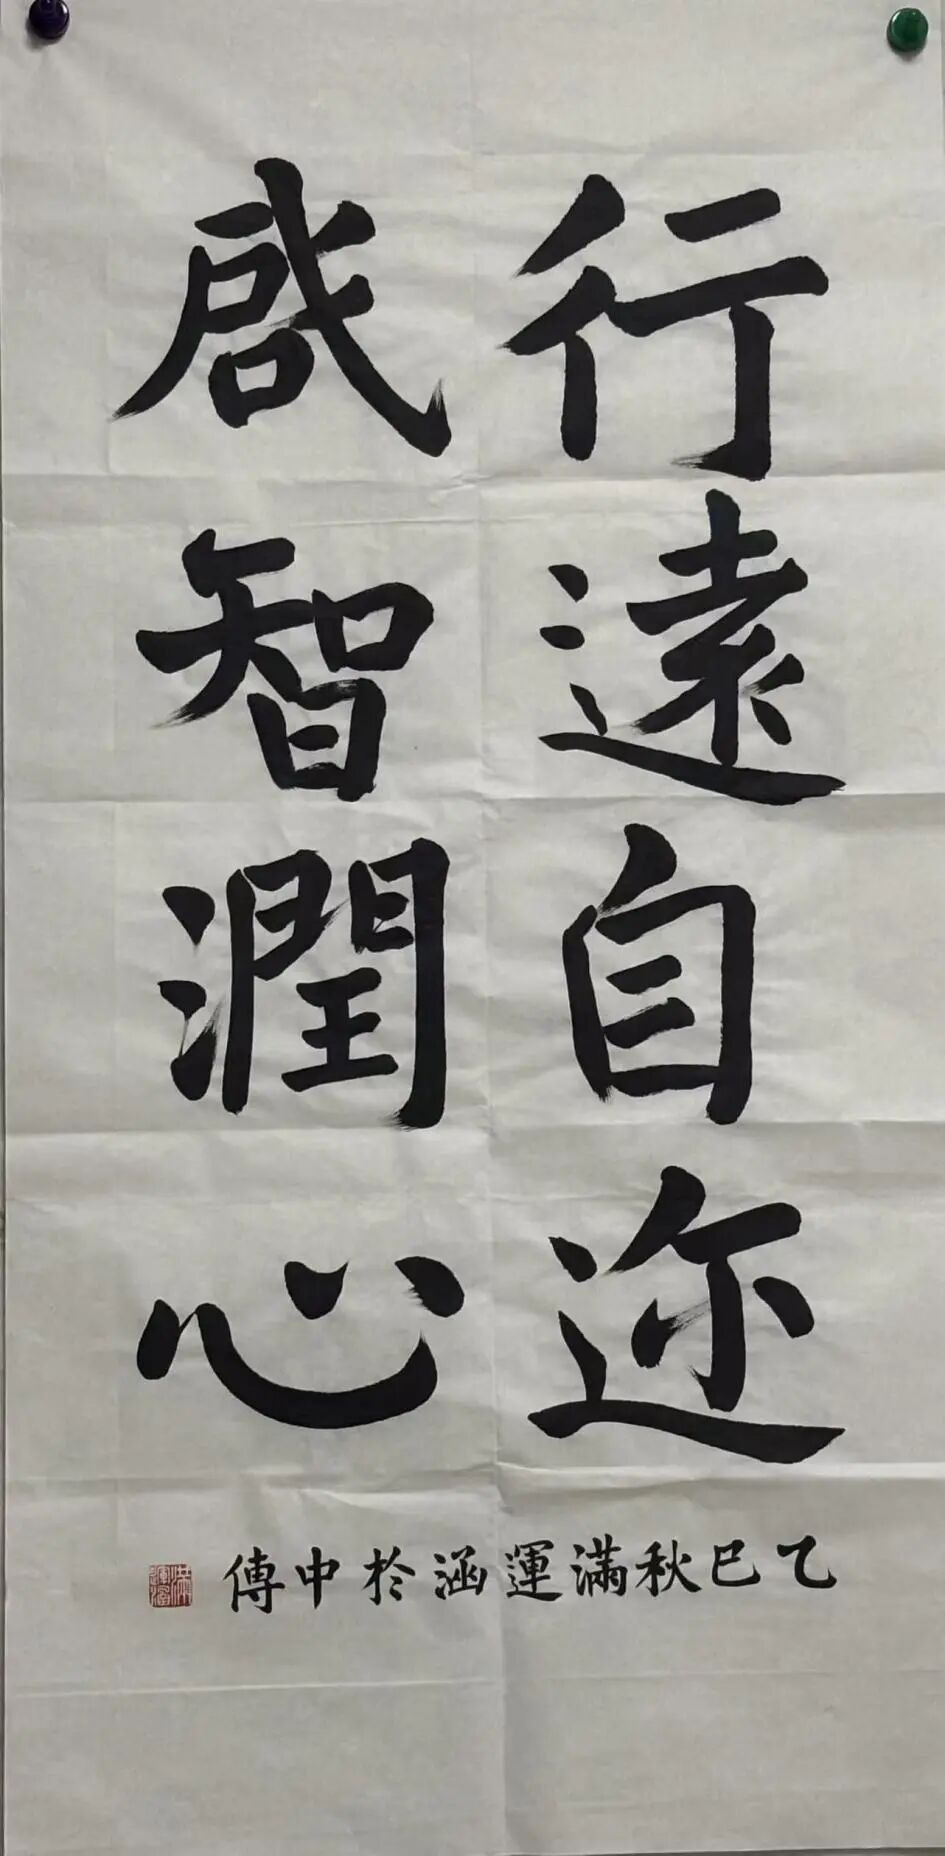 行遠自迩
啟智潤心
乙巳秋滿運涵於中傳